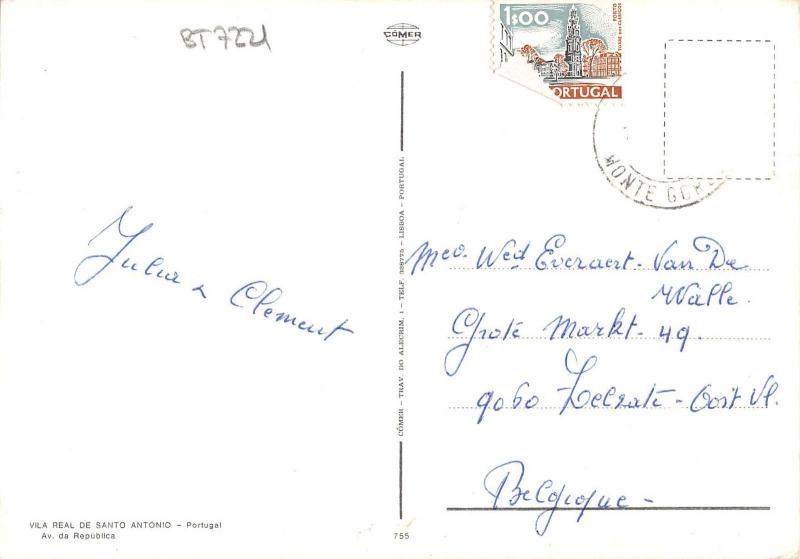 BT7221
CÓMER
1$00
PORTO
TORRE DOS CLÉRIGOS
PORTUGAL
MONTE GORDO
Julia & Clement
CÓMER — TRAV. DO ALECRIM, 1 — TELF. 328775 — LISBOA — PORTUGAL
Mev. Wed Everaert-Van De
Walle.
Grote Markt-49.
9060 Zelzate-Oost Vl.
Belgique-
VILA REAL DE SANTO ANTÓNIO — Portugal
Av. da República
755